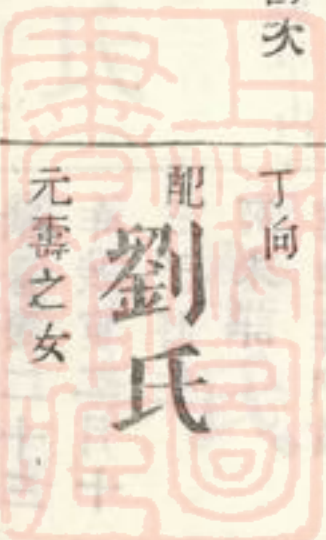 次
丁向
配劉氏
元壽之女